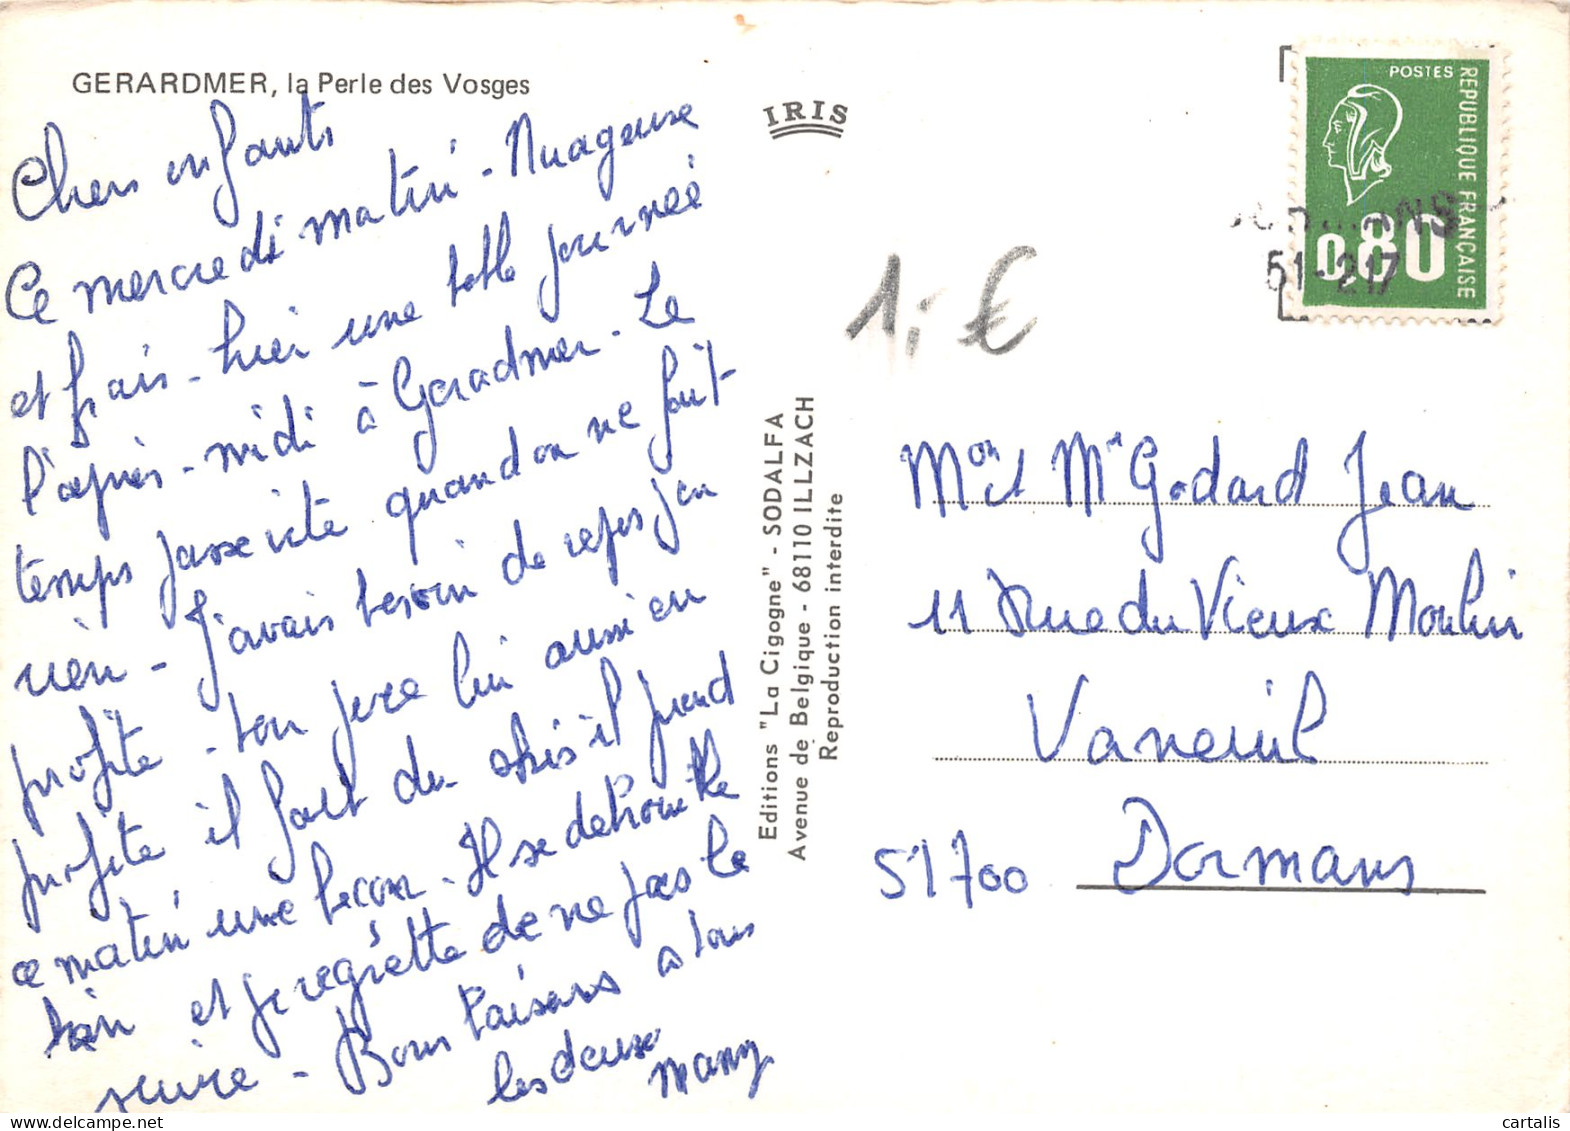 GERARDMER, la Perle des Vosges
Chers enfants
Ce mercredi matin - Nuageuse
et frais - hier une belle journée
l'après-midi à Gerardmer - Le
temps passe vite quand on ne fait
rien - J'avais besoin de repos j'en
profite - ton père lui aussi en
profite il fait du skis il prend
ce matin une leçon - Il se debrouille
bien et je regrette de ne pas le
suivre - Bons baisers a tous
les deux
Many
IRIS
Editions "La Cigogne" - SODALFA
Avenue de Belgique - 68110 ILLZACH
Reproduction interdite
1 €
POSTES
REPUBLIQUE FRANÇAISE
0,80
51-217
Mon et Me Godard Jean
11 Rue du Vieux Moulin
Vaneuil
51700 Dormans
cartalis
delcampe.net